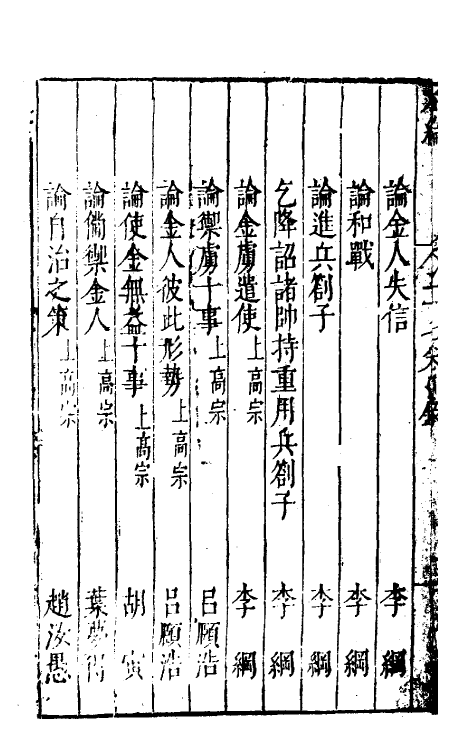 論金人失信 李綱
論和戰 李綱
論進兵劄子 李綱
乞降詔諸帥持重用兵劄子 李綱
論金虜遣使上高宗 李綱
論禦虜十事上高宗 呂頤浩
論金人彼此形勢上高宗 呂頤浩
論使金無益十事上高宗 胡寅
論備禦金人上高宗 葉夢得
論自治之策上高宗 趙汝愚